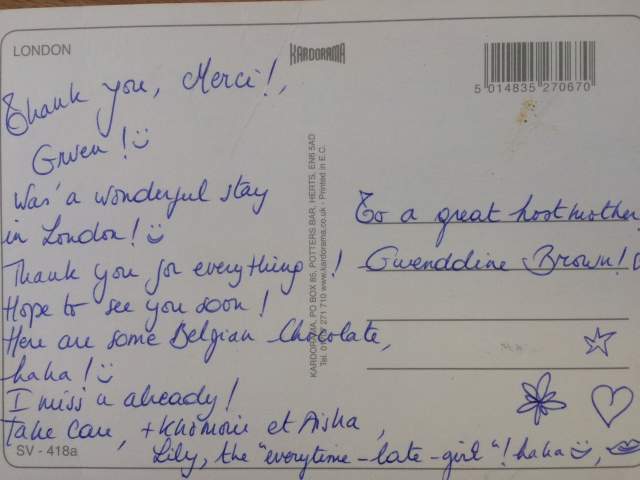 LONDON
KARDORAMA
5 014835 270670
Thank you, Merci!,
Gwen! 
Was a wonderful stay
in London!
Thank you for everything!
Hope to see you soon!
Here are some Belgian Chocolate,
haha!
I miss u already!
Take Care, + Khomoic et Aisha,
Lily, the "everytime-late-girl"! haha
SV - 418a
KARDORAMA, PO BOX 85, POTTERS BAR, HERTS, EN6 5AD
271 710 www.kardorama.co.uk - Printed in E.C.
To a great hostmother,
Gwenddine Brown!